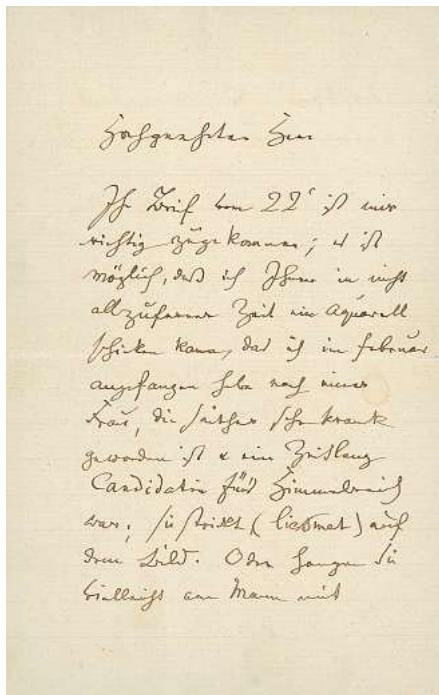 Hochgeehrter Herr
Ihr Brief vom 22t ist mir
richtig zugekommen; es ist
möglich, daß ich Ihnen in nicht
allzuferner Zeit ein Aquarell
schicken kann, das ich im Februar
angefangen habe nach einer
Frau, die seither sehr krank
geworden ist & ein Zeitlang
Candidatin fürs Himmelreich
war; sie strickt (lismet) auf
dem Bild. Oder hangen Sie
vielleicht am Mann mit